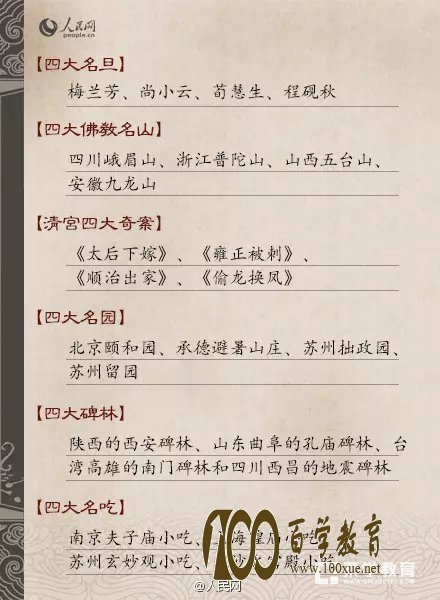 人民网
people.cn
【四大名旦】
梅兰芳、尚小云、荀慧生、程砚秋
【四大佛教名山】
四川峨眉山、浙江普陀山、山西五台山、
安徽九龙山
【清宫四大奇案】
《太后下嫁》、《雍正被刺》、
《顺治出家》、《偷龙换凤》
【四大名园】
北京颐和园、承德避暑山庄、苏州拙政园、
苏州留园
【四大碑林】
陕西的西安碑林、山东曲阜的孔庙碑林、台
湾高雄的南门碑林和四川西昌的地震碑林
【四大名吃】
南京夫子庙小吃、
苏州玄妙观小吃、
100百学教育
www.100xue.net
@人民网